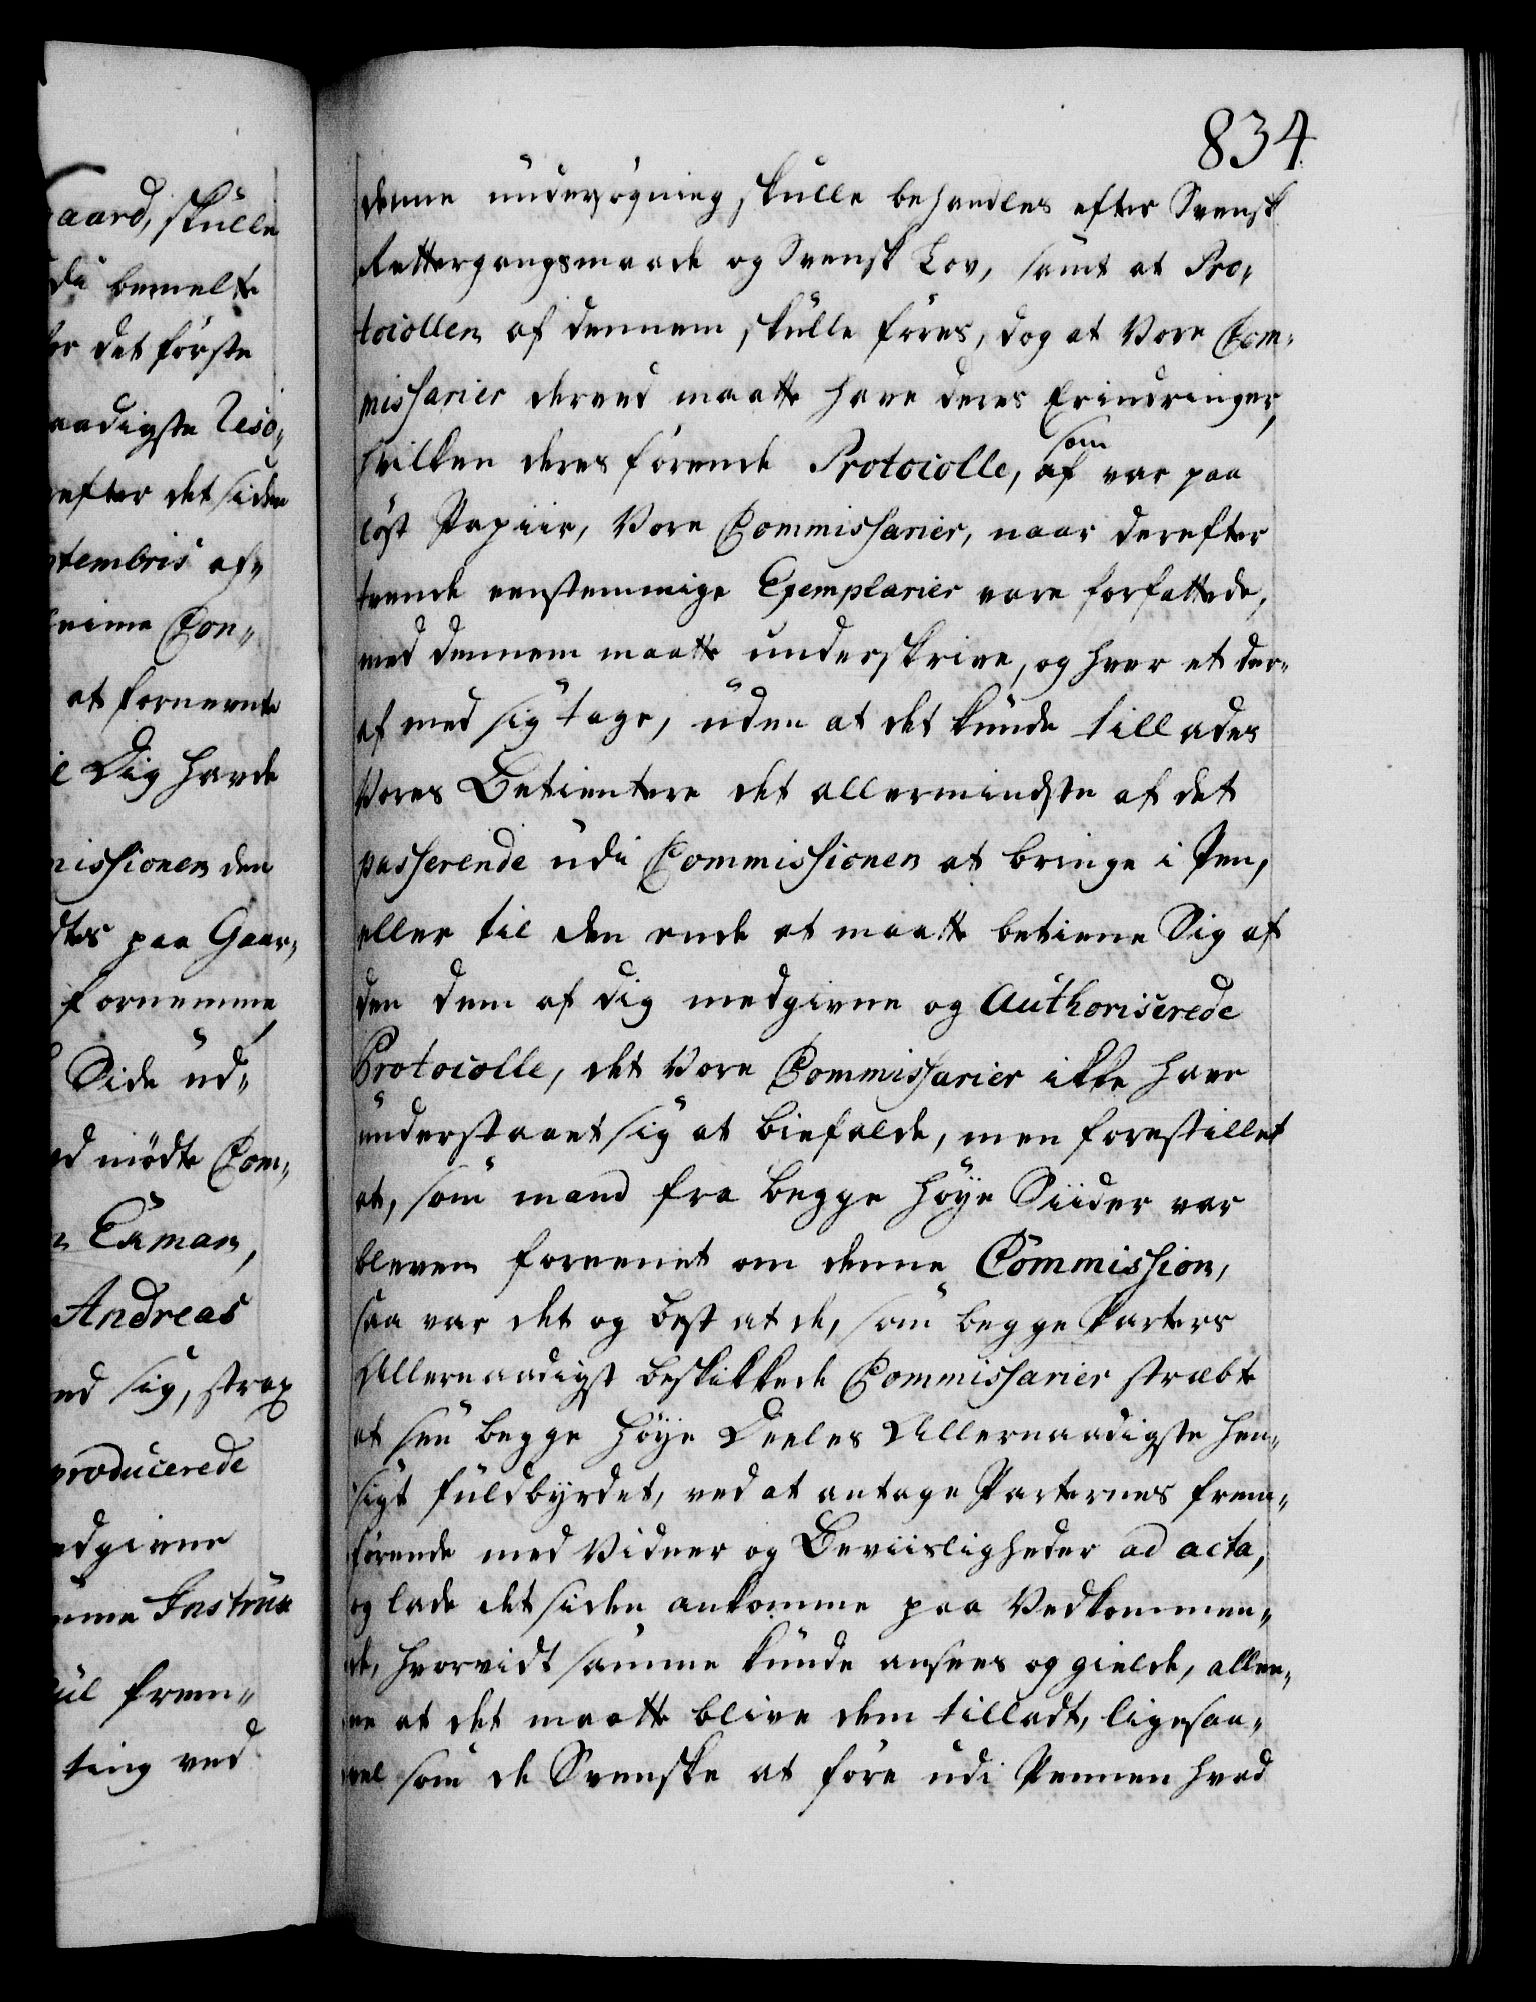 834
denne undersøgning skulle behandles efter Svensk
Rettergangsmaade og Svensk Lov, samt at Pro-
tocollen af dennem skulle føres, dog at Vore Com-
missarier derved maatte have deres Erindringer,
hvilken deres førende Protocolle, som
af var paa
løst Papiir, Vore Commissarier, naar derefter
tvende eenstemmige Exemplarier vare forfattede,
med dennem maatte underskrive, og hver et der-
af med sig tage, uden at det kunde tillades
Vores Betientere det allermindste af det
passerende udi Commissionen at bringe i Pen,
eller til den ende at maatte betiene Sig af
den dem af dig medgivne og Authoriserede
Protocolle, det Vore Commissarier ikke have
understaaet sig at biefalde, men forestillet
at, som mand fra begge høye Siider var
bleven foreenet om denne Commission,
saa var det og best at de, som begge Parters
Allernaadigst beskikkede Commissarier stræbte
at see begge høye Deeles Allernaadigste hen-
sigt fuldbyrdet, ved at antage Parternes frem-
førende med Vidner og Beviisligheder ad acta,
og lade det siden ankomme paa Vedkommen-
de, hvorvidt samme kunde ansees og gielde, allee-
ne at det maatte blive dem tilladt, ligesaa-
vel som de Svenske at føre udi Pennen hvad
aard, skulle
bemelte
det første
naadigste Reso-
efter det siden
ptembris af-
Con-
at fornevnte
Dig havde
missionen den
paa Gaar-
fornemme
Side ud-
mødte Com-
Eaman,
Andreas
sig, strax
producerede
medgivne
Instrux
frem-
ting ved